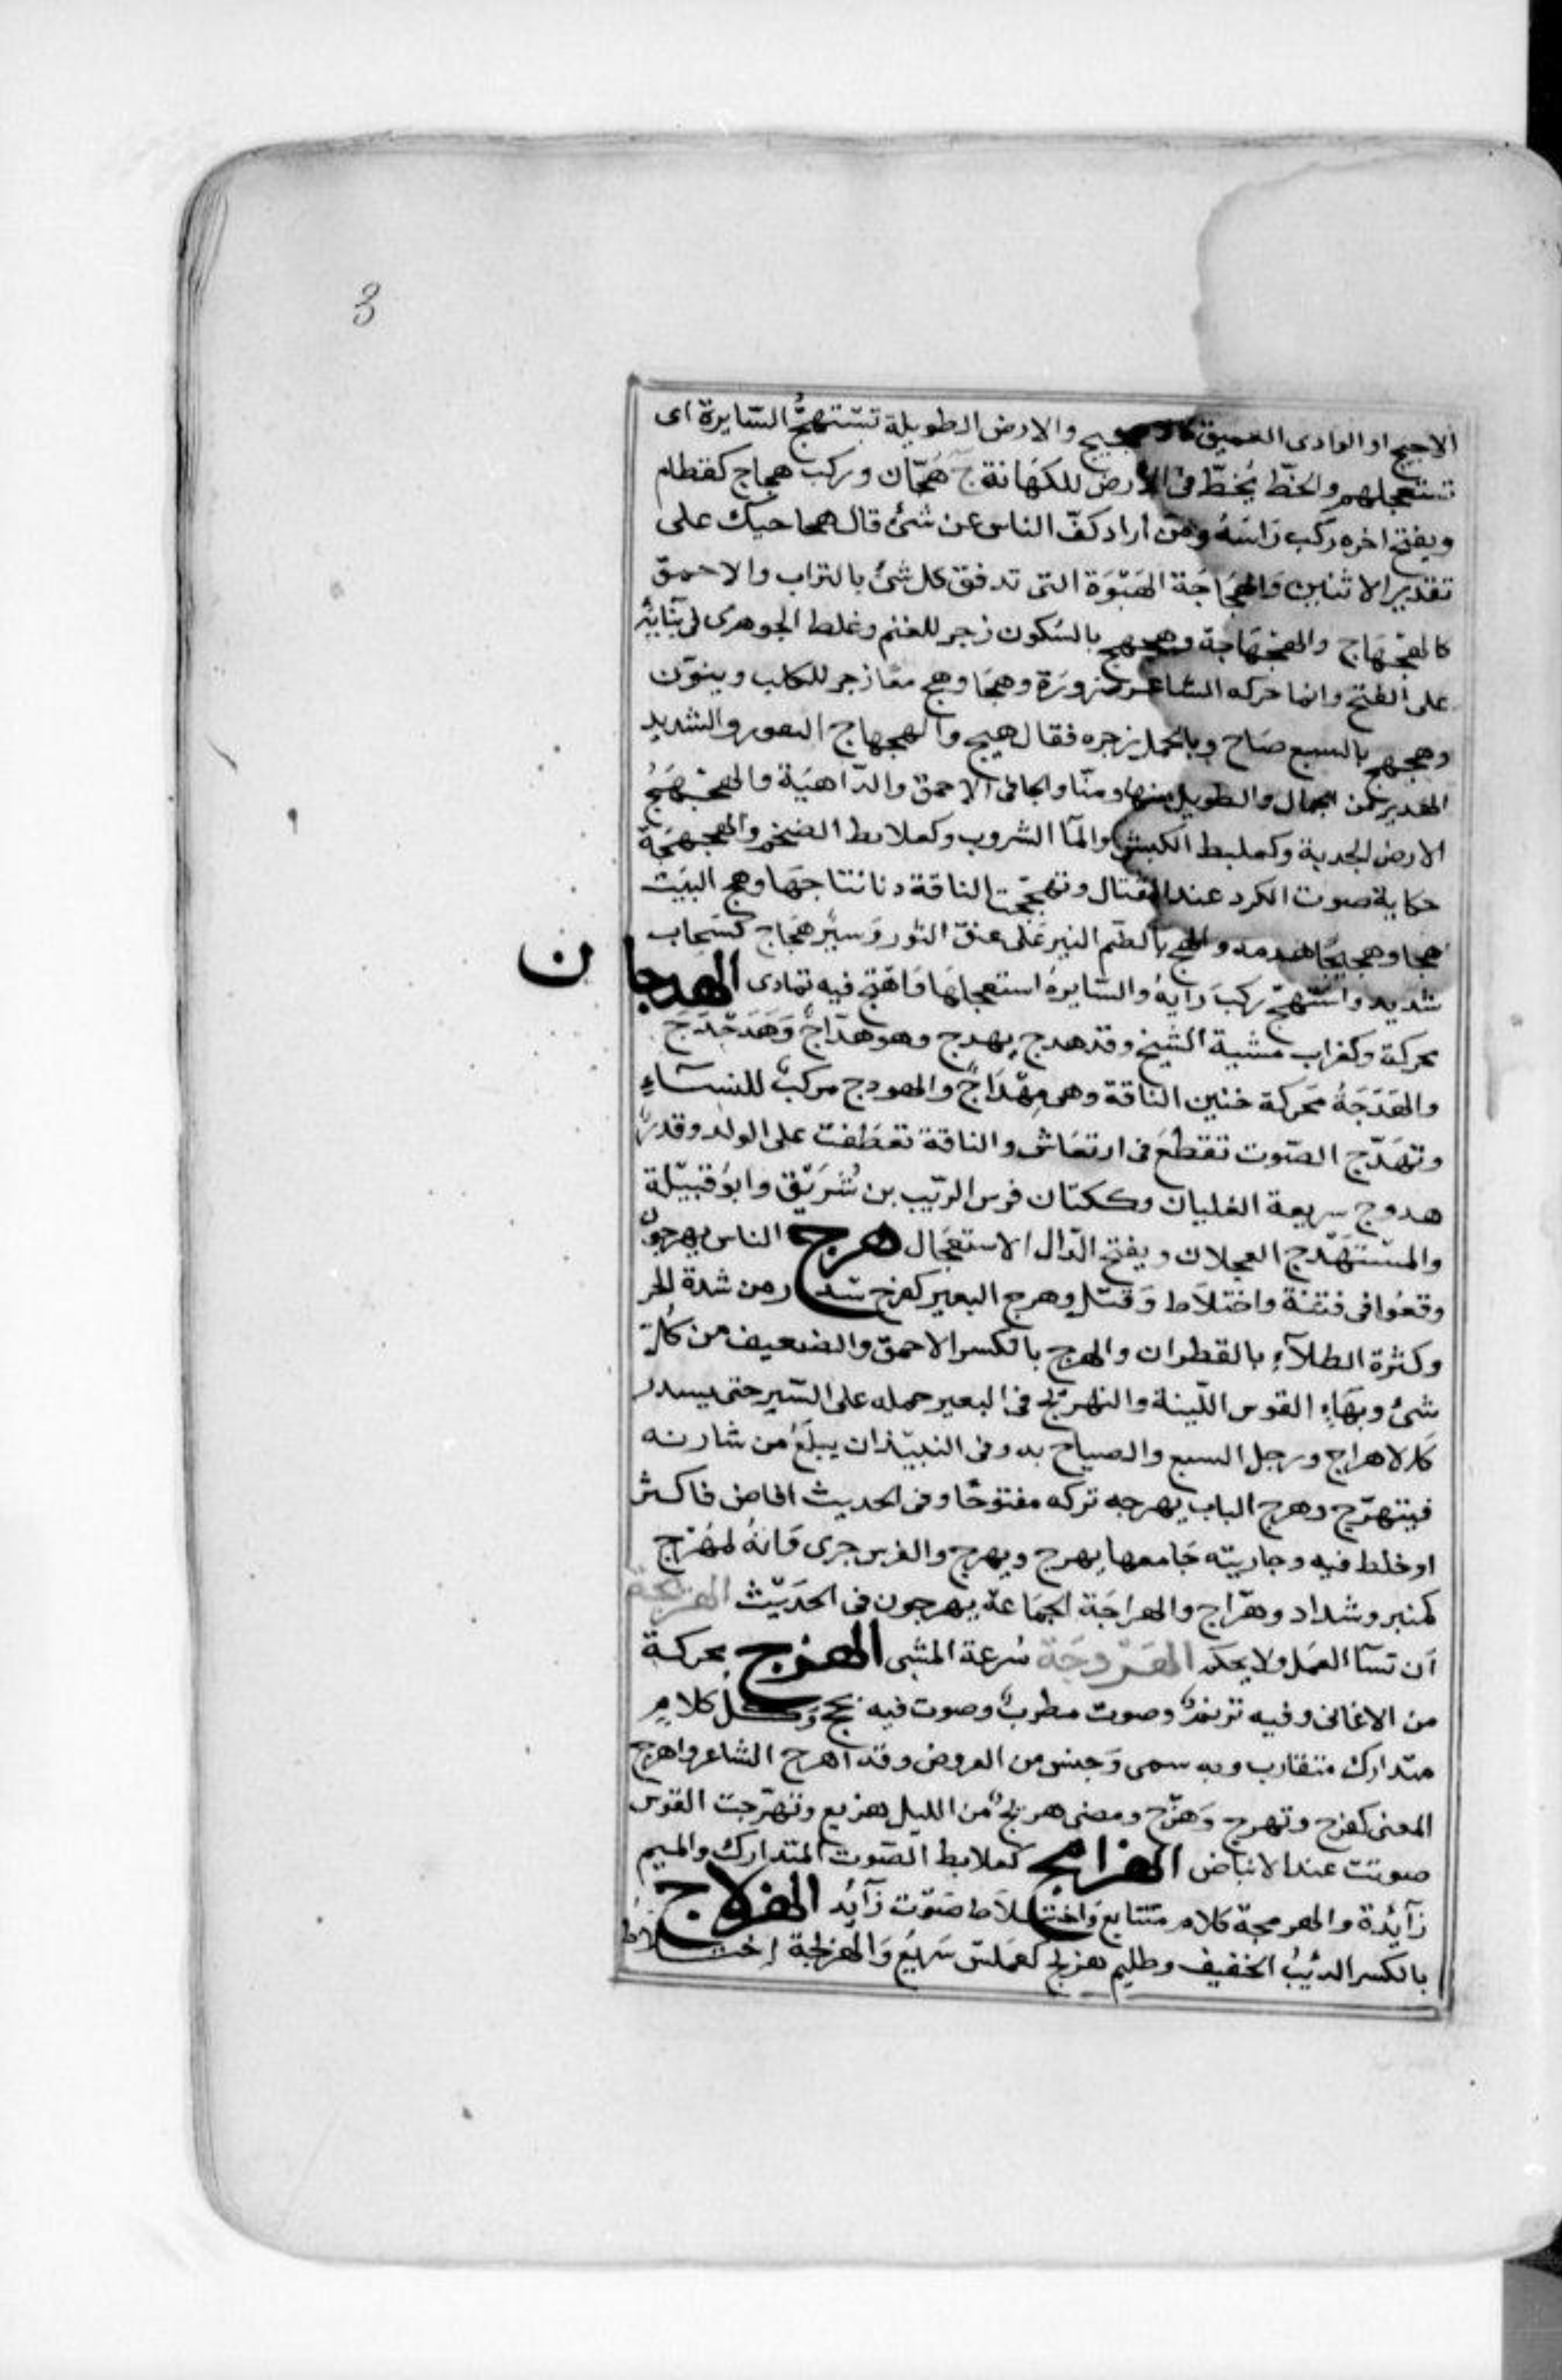 3
الاجيج او الوادى العميق كالاهجيج والارض الطويلة تستهجّ السّايرة اى
تستعجلهم والخطّ يُخطّ فى الأرض للكهَانة ج هُجّان وركب هجاج كقطام
ويفتح اخره ركب رَاسَهُ ومن أراد كفّ الناس عن شئ قال هجاجيك على
تقدير الاثنين وَالهجَاجَة الهَبْوَة التى تدفن كل شئ بالتراب والاحمق
كالهجْهَاج والهجْهَاجة وهجهج بالسُكون زجر للغنم وغلط الجوهرى فى بنائه
على الفتح وانما حركه الشاعر ضرورَة وهجَا وهج هجّا زجر للكلب وينوّن
وهجهج بالسبع صَاح وبالجمل زجره فقال هيج والهجهاج النفور والشديد
الهدير من الجمال والطويل منها ومنّا والجافى الاحمق والدّاهيَة والهجْهَجُ
الارض الجدبة وكعلبط الكبش والمآ الشروب وكعلابط الضخم والهجهجَة
حكاية صوت الكرد عند القتال وتهجهجت الناقة دنا نتاجهَا وهج البيَت
هجا وهجيجًا هدمه والهج بالضّم النير عَلى عنق الثور وَسيْر هجَاج كسَحاب
شديد واستهجّ ركبَ رَايهُ والسّايرة استعجلهَا وَاهْتجّ فيه تمادى الهدجان
محركة وكغراب مشية الشيخ وقد هدج يهدج وهو هدّاجٌ وَهَدَجْدَجَ
والهَدَجَةُ محَركة حنين الناقة وهى مِهْدَاجٌ والهودج مركبٌ للنسَاءِ
وتهَدّج الصّوت تقطّعَ فى ارتعَاش والناقة تعَطفت على الولد وقدرٌ
هدوج سريعة الغليان وككتان فرس الرّيب بن شُرَيْق وابوُ قبيْلة
والمسْتهَدّج العجلان ويفتح الدّال الاستعجَال هرج الناس يهرجونَ
وقعُوا فى فتنة واختلاَط وَقتل وهرج البعير كفرح سدر من شدة الحر
وكثرة الطلآءِ بالقطران والهرج بالكسر الاحمق والضعيف من كُلّ
شئ وبهَاءِ القوس اللّينة والتهريج فى البعير حمله على السّير حتى يسدر
كَالاهراج ورجل السبع والصياح به وفى النبيْذ ان يبلَغَ من شاربه
فيتهرّج وهرج الباب يهرجه تركه مفتوحًا وفى الحديث افاض فاكثر
اوخلط فيه وجاريته جَامعها يهرج ويهرج والفرس جرى وَانهُ لمُهْرَج
كمنبر وشداد وهرّاج والهراجَة الجمَاعة يهرجون فى الحدَيْث الهزبجة
اَن تسآ العمَل ولا يحكم الهَزْدجَة سُرعة المشى الهزج محركة
من الاغانى وفيه ترنمٌ وصوت مطربٌ وصوت فيه بحح وَكل كلامٍ
متدارك متقارب وبه سمى وَجنس من العروض وقد اهزج الشاعر واهزج
المغنى كفرح وتهزج وَهَزّج ومضى هزيجٌ من الليل هزيع وتهزّجت القوس
صوتت عند الانباض الهزامج كعلابط الصّوت المتدارك والميم
زآئدة والهزمجة كلام متتابع وَاختلاَط صَوْت زآئد الهزلاج
بالكسر الذئبُ الخفيف وظليم هزلج كعَملس سَريعُ وَالهَزلجَة اِختلاَط